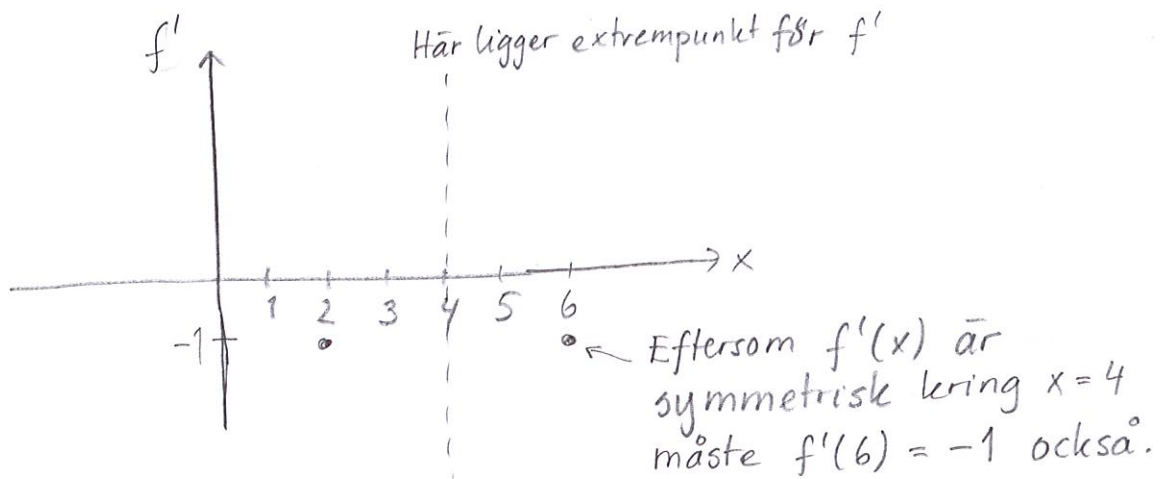 f'
Här ligger extrempunkt för f'
x
1 2 3 4 5 6
-1
Eftersom f'(x) är
symmetrisk kring x = 4
måste f'(6) = -1 också.